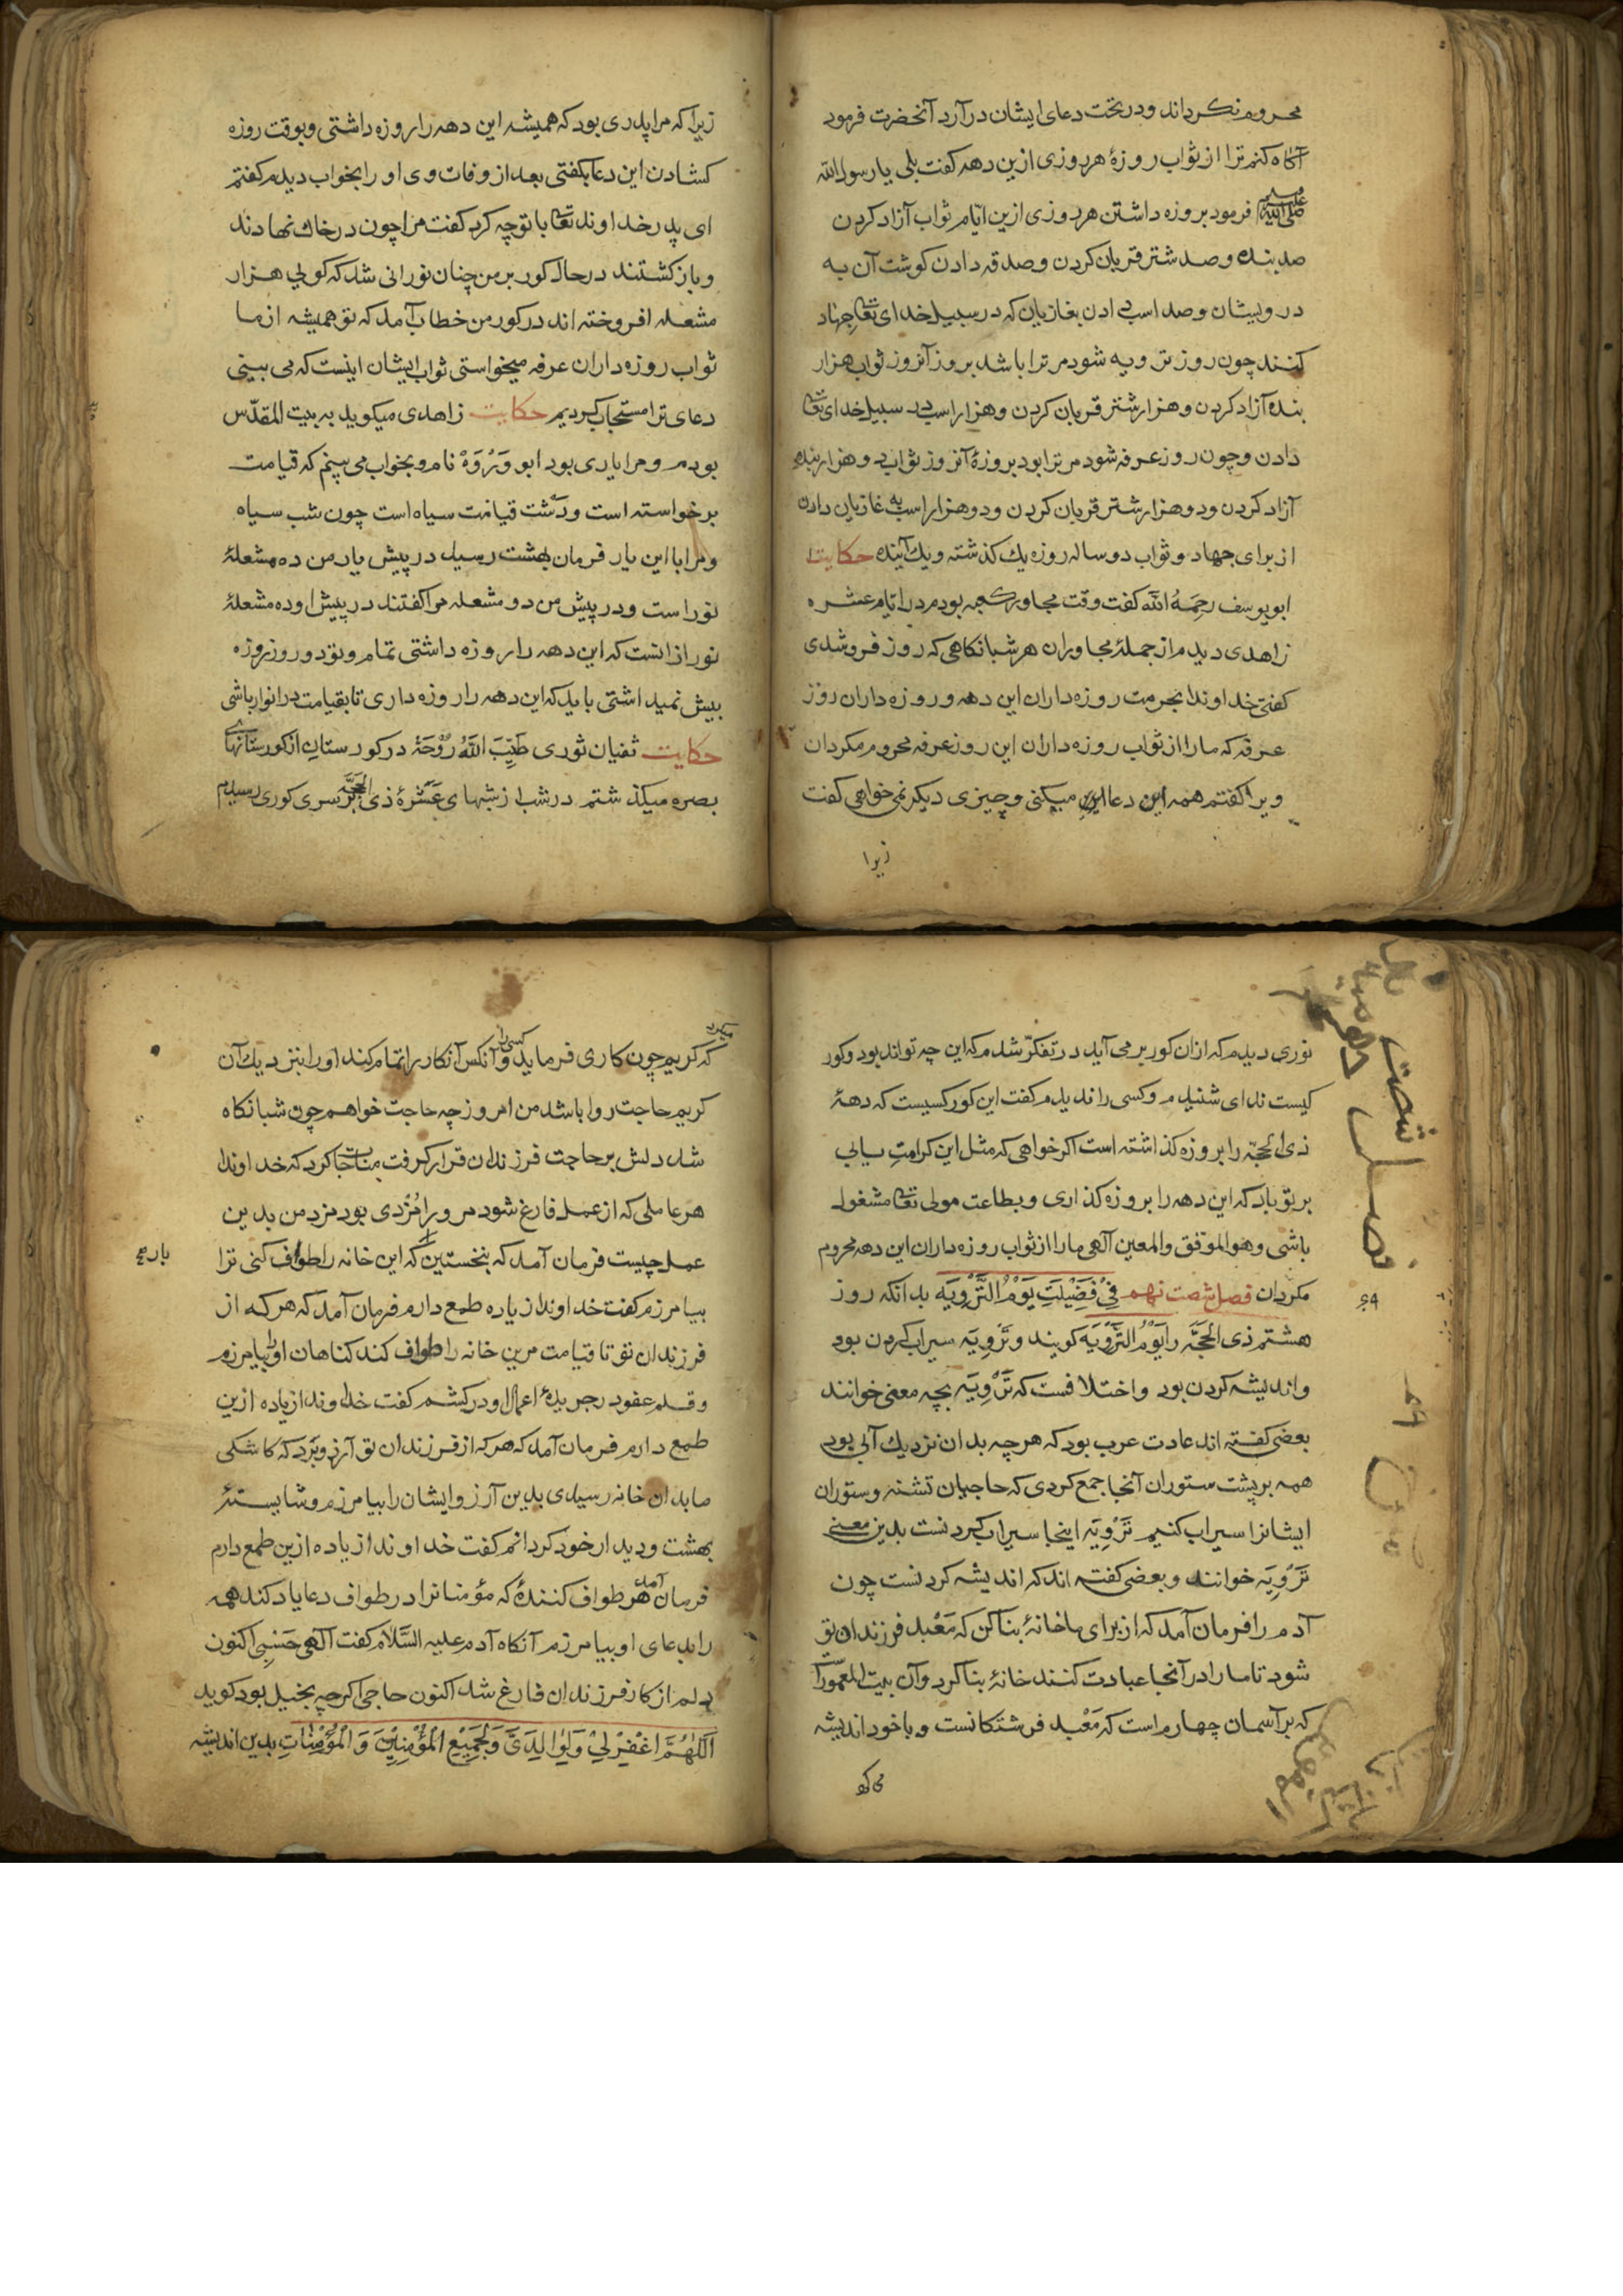 محروم نکرداند ودر تحت دعای ایشان درآرد آنحضرت فرمود
آکاه کنم ترا از ثواب روزهٔ هر روزی ازین دهه کفت بلی یا رسول الله
صلی الله علیه وسلم فرمود بروزه داشتن هر روزی ازین ایّام ثواب آزاد کردن
صد بنده وصد شتر قربان کردن وصدقه دادن کوشت آن به
درویشان وصد اسب دادن بغازیان که در سبیل خدای تعا جهاد
کنند چون روز ترویه شود مر ترا باشد بروز آنروز ثواب هزار
بنده آزاد کردن وهزار شتر قربان کردن وهزار اسب در سبیل خدای تعا
دادن وچون روز عرفه شود مر ترا بود بروزهٔ آنروز ثواب دو هزار بنده
آزاد کردن ودو هزار شتر قربان کردن ودو هزار اسب به غازیان دادن
از برای جهاد وثواب دو ساله روزه یك کذشته ویك آینده حکایت
ابو یوسف رحمه الله کفت وقت مجاور کعبه بودم در ایّام عشره
زاهدی دیدم از جملهٔ مجاوران هر شبانکاهی که روز فرو شدی
کفتی خداوندا بحرمت روزه داران این دهه وروزه داران روز
عرفه که ما را از ثواب روزه داران این روز عرفه محروم مکردان
ویرا کفتم همه این دعا میکنی وچیزی دیکر نمی خواهی کفت
زیرا
زیرا که مرا پدری بود که همیشه این دهه را روزه داشتی وبوقت روزه
کشادن این دعا بکفتی بعد از وفات وی او را بخواب دیدم کفتم
ای پدر خداوند تعا با تو چه کرد کفت مرا چون در خاك نهادند
وباز کشتند در حال کور بر من چنان نورانی شد که کویی هزار
مشعله افروخته اند در کور من خطاب آمد که تو همیشه از ما
ثواب روزه داران عرفه میخواستی ثواب ایشان اینست که می بینی
دعای ترا مستجاب کردیم حکایت زاهدی میکوید به بیت المقدّس
بودم ومرا یاری بود ابو وَرْوَهْ نام وبخواب می بینم که قیامت
برخواسته است ودشت قیامت سیاه است چون شب سیاه
ومرا با این یار فرمان بهشت رسید در پیش یار من ده مشعلهٔ
نور است ودر پیش من دو مشعله مرا کفتند در پیش او ده مشعلهٔ
نور از انست که این دهه را روزه داشتی تمام وتو دو روز روزه
بیش نمیداشتی باید که این دهه را روزه داری تا بقیامت در انوار باشی
حکایت ثفیان ثوری طَیِّبَ اللّٰهُ رُوْحَهْ در کورستان از کورستانهای
بصره میکذشتم در شب از شبهای عَشْرَهٔ ذی الحجّه بر سری کوری رسیدم
نوری دیدم که از ان کور بر می آید در تفکّر شدم که این چه تواند بود وکور
کیست ندای شنیدم وکسی را ندیدم کفت این کور کسیست که دههٔ
ذی الحجّه را بروزه کذاشته است اکر خواهی که مثل این کرامت یابی
بر تو باد که این دهه را بروزه کذاری وبطاعت مولی تعا مشغول
باشی وهو الموفق والمعین آلهی ما را از ثواب روزه داران این دهه محروم
مکردان فصل شصت نهم فِیْ فَضِیْلَتِ یَوْمُ التَّرْوِیَه بدانکه روز
هشتم ذی الحَجَّه را یَوْمُ التَّرْوِیَه کویند وتَرْوِیَه سیراب کردن بود
واندیشه کردن بود واختلافست که تَرْوِیَه بچه معنی خوانند
بعضی کفته اند عادت عرب بود که هر چه بدان نزدیك آبی بود
همه بر پشت ستوران آنجا جمع کردی که حاجیان تشنه وستوران
ایشانرا سیراب کنیم تَرْوِیَه اینجا سیراب کردنست بدین معنی
تَرْوِیَه خوانند وبعضی کفته اند که اندیشه کردنست چون
آدم را فرمان آمد که از برای ما خانهٔ بنا کن که مَعْبد فرزندان تو
شود تا ما را در آنجا عبادت کنند خانهٔ بنا کرد وآن بیت المعمور را
که بر آسمان چهارم است که مَعْبد فرشتکانست وبا خود اندیشه
می کرد
فصل شصت
۶۹
میکرد
که کریم چون کاری فرماید کسی را وآنکس آنکار را تمام کند او را بنزدیك آن
کریم حاجت روا باشد من امروز چه حاجت خواهم چون شبانکاه
شد دلش بر حاجت فرزندان قرار کرفت مناجات کرد که خداوندا
هر عاملی که از عمل فارغ شود مر ورا مُزْدی بود مزد من بدین
عمل چیست فرمان آمد که بنخستین بار که این خانه را طواف کنی ترا
بیامرزم کفت خداوندا زیاده طمع دارم فرمان آمد که هر که از
فرزندان تو تا قیامت مرین خانه را طواف کند کناهان او را بیامرزم
وقلم عفو در جریدهٔ اعمال او در کشم کفت خداوندا زیاده ازین
طمع دارم فرمان آمد که هر که از فرزندان تو آرزو برد که کاشکی
ما بدان خانه رسیدی بدین آرزو ایشان را بیامرزم وشایستهٔ
بهشت ودیدار خود کردانم کفت خداوندا زیاده ازین طمع دارم
فرمان آمد هر طواف کنندهٔ که مؤمنانرا در طواف دعا یاد کند همه
را بدعای او بیامرزم آنکاه آدم علیه السَّلام کفت آلهی حَسْبِی اکنون
دلم از کار فرزندان فارغ شد اکنون حاجی اکر چه بخیل بود کوید
اَللّٰهُمَّ اغْفِرْ لِیْ وَلِوٰالِدَیَّ وَلِجَمِیْعِ الْمُؤْمِنِیْنَ وَالْمُؤْمِنٰاتِ بدین اندیشه